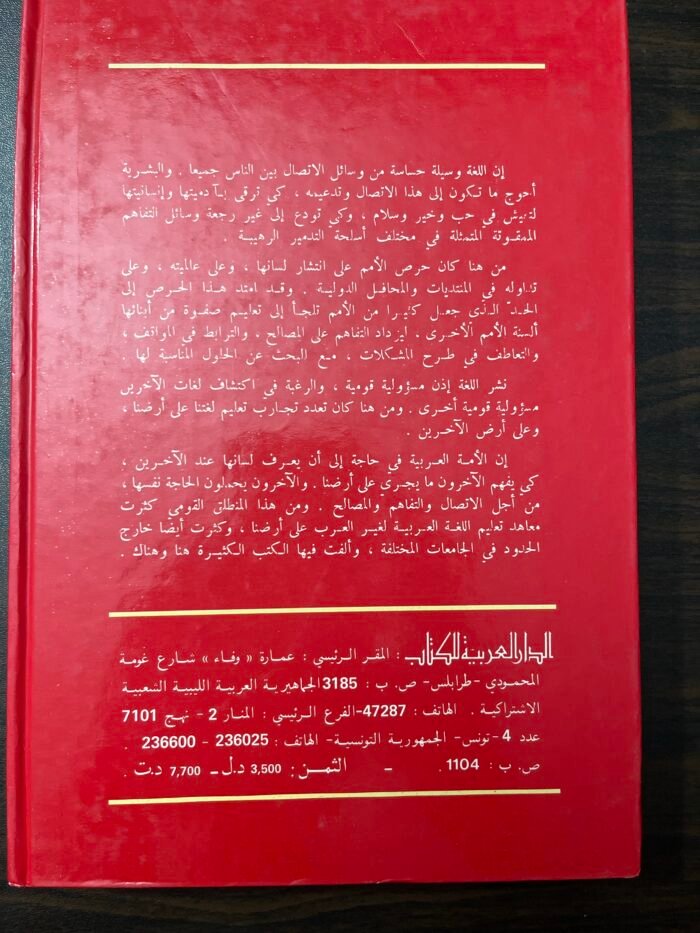 إن اللغة وسيلة حساسة من وسائل الاتصال بين الناس جميعا . والبشرية
أحوج ما تكون إلى هذا الاتصال وتدعيمه ، كي ترقى بآدميتها وإنسانيتها
لتعيش في حب وخير وسلام ، وكي تودع إلى غير رجعة وسائل التفاهم
الممقوتة المتمثلة في مختلف أسلحة التدمير الرهيبة .
من هنا كان حرص الأمم على انتشار لسانها ، وعلى عالميته ، وعلى
تداوله في المنتديات والمحافل الدولية . وقد امتد هذا الحرص إلى
الحد الذي جعل كثيرا من الأمم تلجأ إلى تعليم صفوة من أبنائها
ألسنة الأمم الأخرى ، ليزداد التفاهم على المصالح ، والترابط في المواقف ،
والتعاطف في طرح المشكلات ، مع البحث عن الحلول المناسبة لها .
نشر اللغة إذن مسؤولية قومية ، والرغبة في اكتشاف لغات الآخرين
مسؤولية قومية أخرى . ومن هنا كان تعدد تجارب تعليم لغتنا على أرضنا ،
وعلى أرض الآخرين .
إن الأمة العربية في حاجة إلى أن يعرف لسانها عند الآخرين ،
كي يفهم الآخرون ما يجري على أرضنا . والآخرون يحملون الحاجة نفسها ،
من أجل الاتصال والتفاهم والمصالح . ومن هذا المنطلق القومي كثرت
معاهد تعليم اللغة العربية لغير العرب على أرضنا ، وكثرت أيضا خارج
الحدود في الجامعات المختلفة ، وألفت فيها الكتب الكثيرة هنا وهناك .
الدار العربية للكتاب : المقر الرئيسي : عمارة « وفاء » شارع غومة
المحمودي -طرابلس- ص. ب : 3185 الجماهيرية العربية الليبية الشعبية
الاشتراكية . الهاتف : 47287-الفرع الرئيسي : المنار 2 - نهج 7101
عدد 4 -تونس- الجمهورية التونسية- الهاتف : 236025 - 236600 .
ص. ب : 1104 . - الثمن : 3,500 د.ل - 7,700 د.ت .